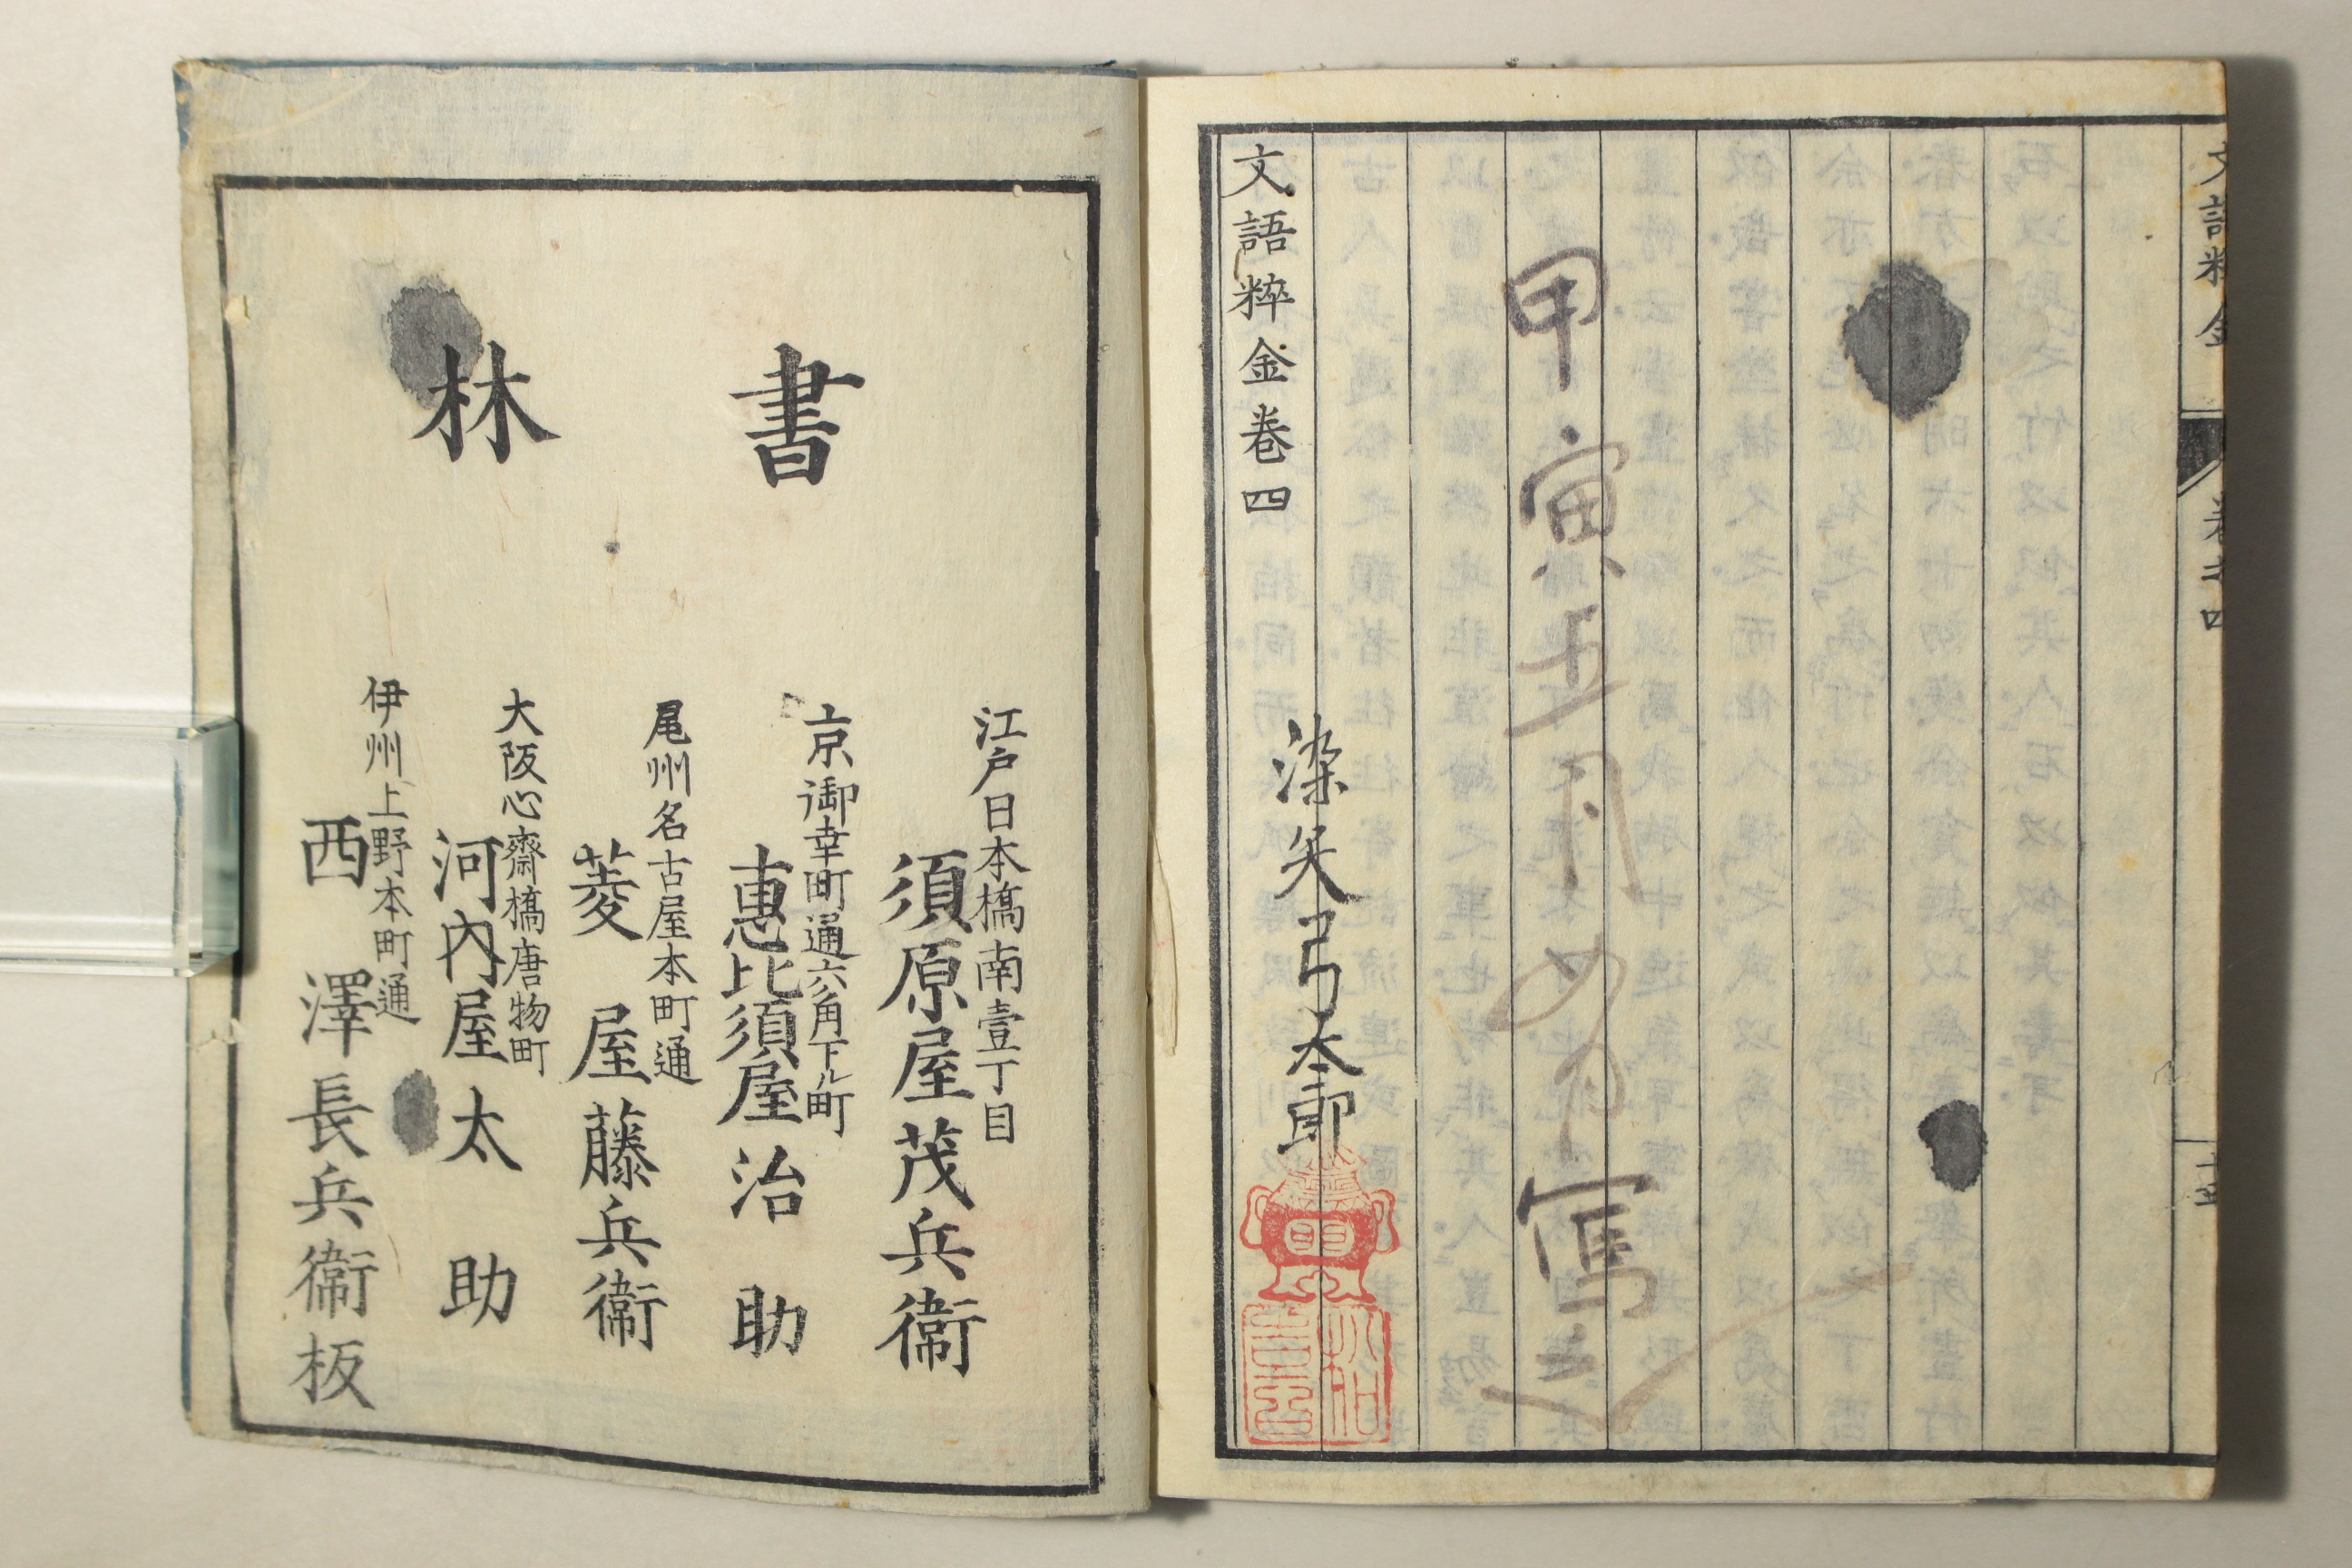 文語粹金
甲寅五月
寫之
文語粹金卷四
染矢弓太郎
書林
江戸日本橋南壹丁目
須原屋茂兵衞
京御幸町通六角下ル町
惠比須屋治助
尾州名古屋本町通
菱屋藤兵衞
大阪心齋橋唐物町
河內屋太助
伊州上野本町通
西澤長兵衞板